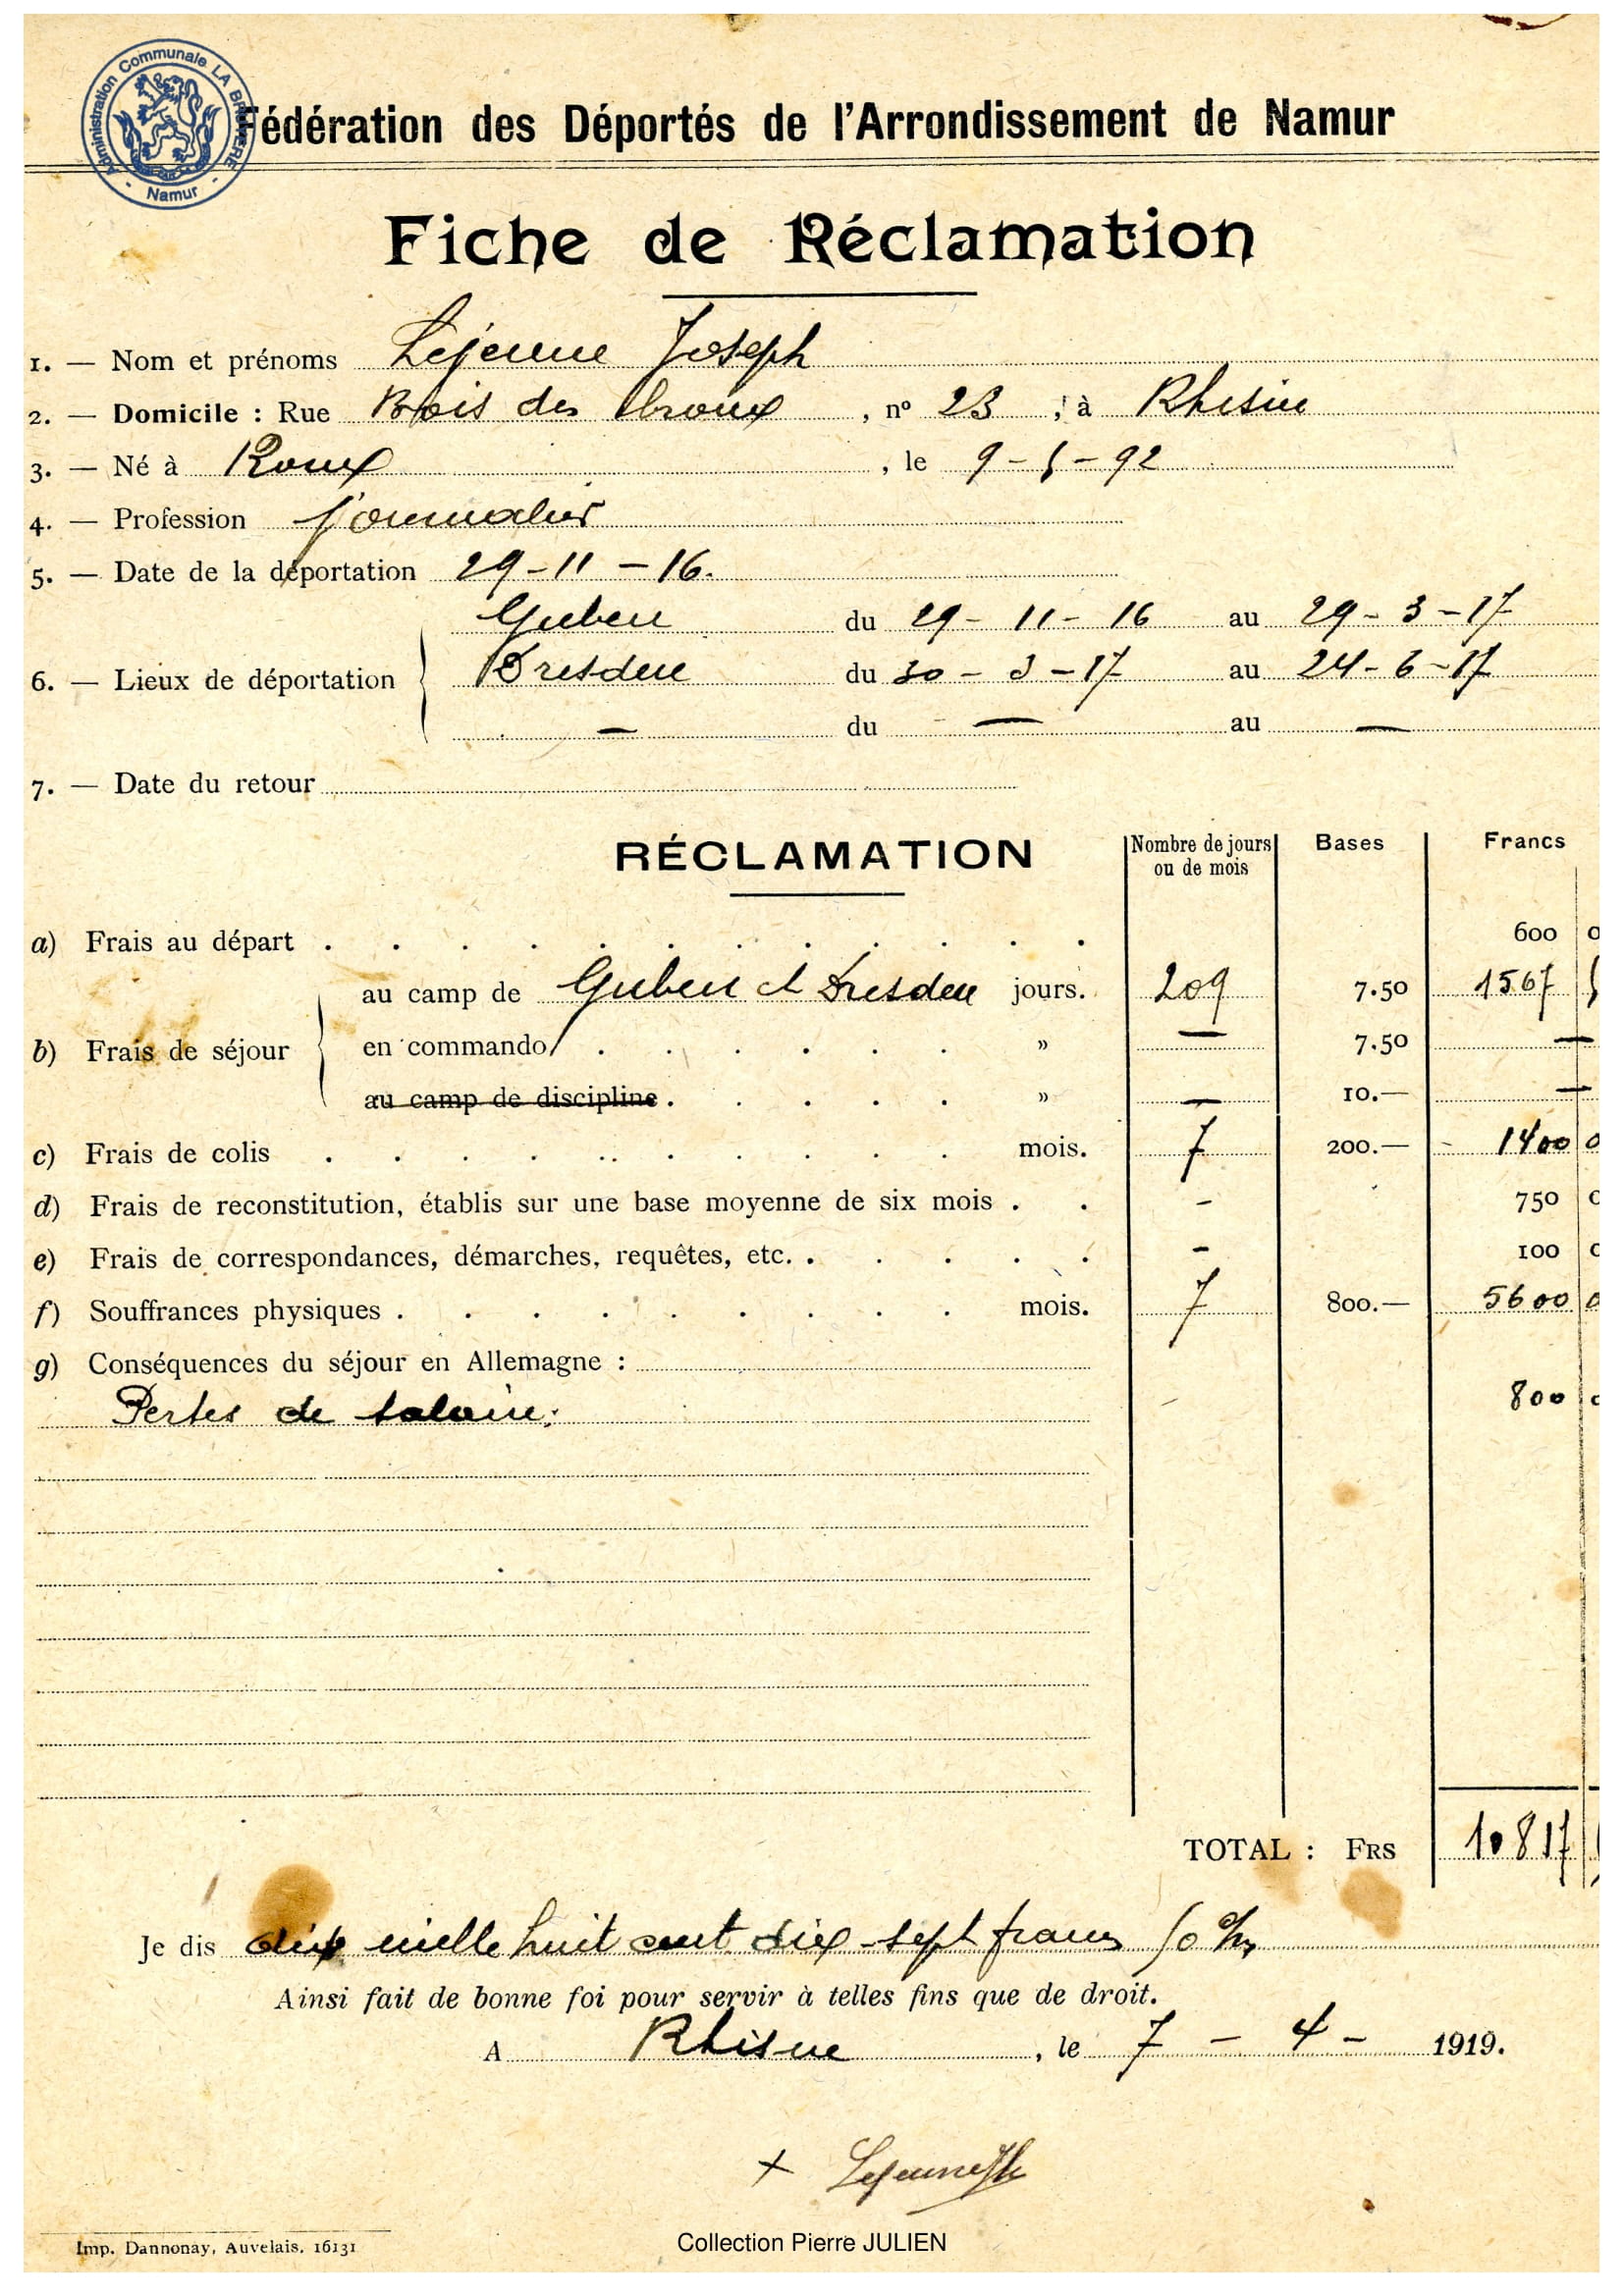 Administration Communale LA BRUYERE
- Namur -
Fédération des Déportés de l'Arrondissement de Namur
Fiche de Réclamation
1. — Nom et prénoms Lejeune Joseph
2. — Domicile : Rue Bois des , nº 23 , à Rhisne
3. — Né à Roux , le 9-5-92
4. — Profession journalier
5. — Date de la déportation 29-11-16.
Guben du 29-11-16 au 29-3-17
6. — Lieux de déportation Dresden du 30-3-17 au 24-6-17
— du — au —
7. — Date du retour
RÉCLAMATION Nombre de jours ou de mois Bases Francs
a) Frais au départ . . . . . . . . . . . . 600 0
b) Frais de séjour au camp de Guben et Dresden jours. 209 7.50 1567 5
en commando . . . . . . » — 7.50 —
au camp de discipline . . . . . » — 10.— —
c) Frais de colis . . . . . . . . . . mois. 7 200.— 1400 0
d) Frais de reconstitution, établis sur une base moyenne de six mois . . - 750 0
e) Frais de correspondances, démarches, requêtes, etc. . . . . . - 100 0
f) Souffrances physiques . . . . . . . . . mois. 7 800.— 5600 0
g) Conséquences du séjour en Allemagne :
Pertes de salaire. 800 0
TOTAL : FRS 10817
Je dis dix mille huit cent dix-sept francs 50 c/m
Ainsi fait de bonne foi pour servir à telles fins que de droit.
A Rhisne , le 7 - 4 - 1919.
+ Lejeune Jh
Imp. Dannonay, Auvelais. 16131
Collection Pierre JULIEN